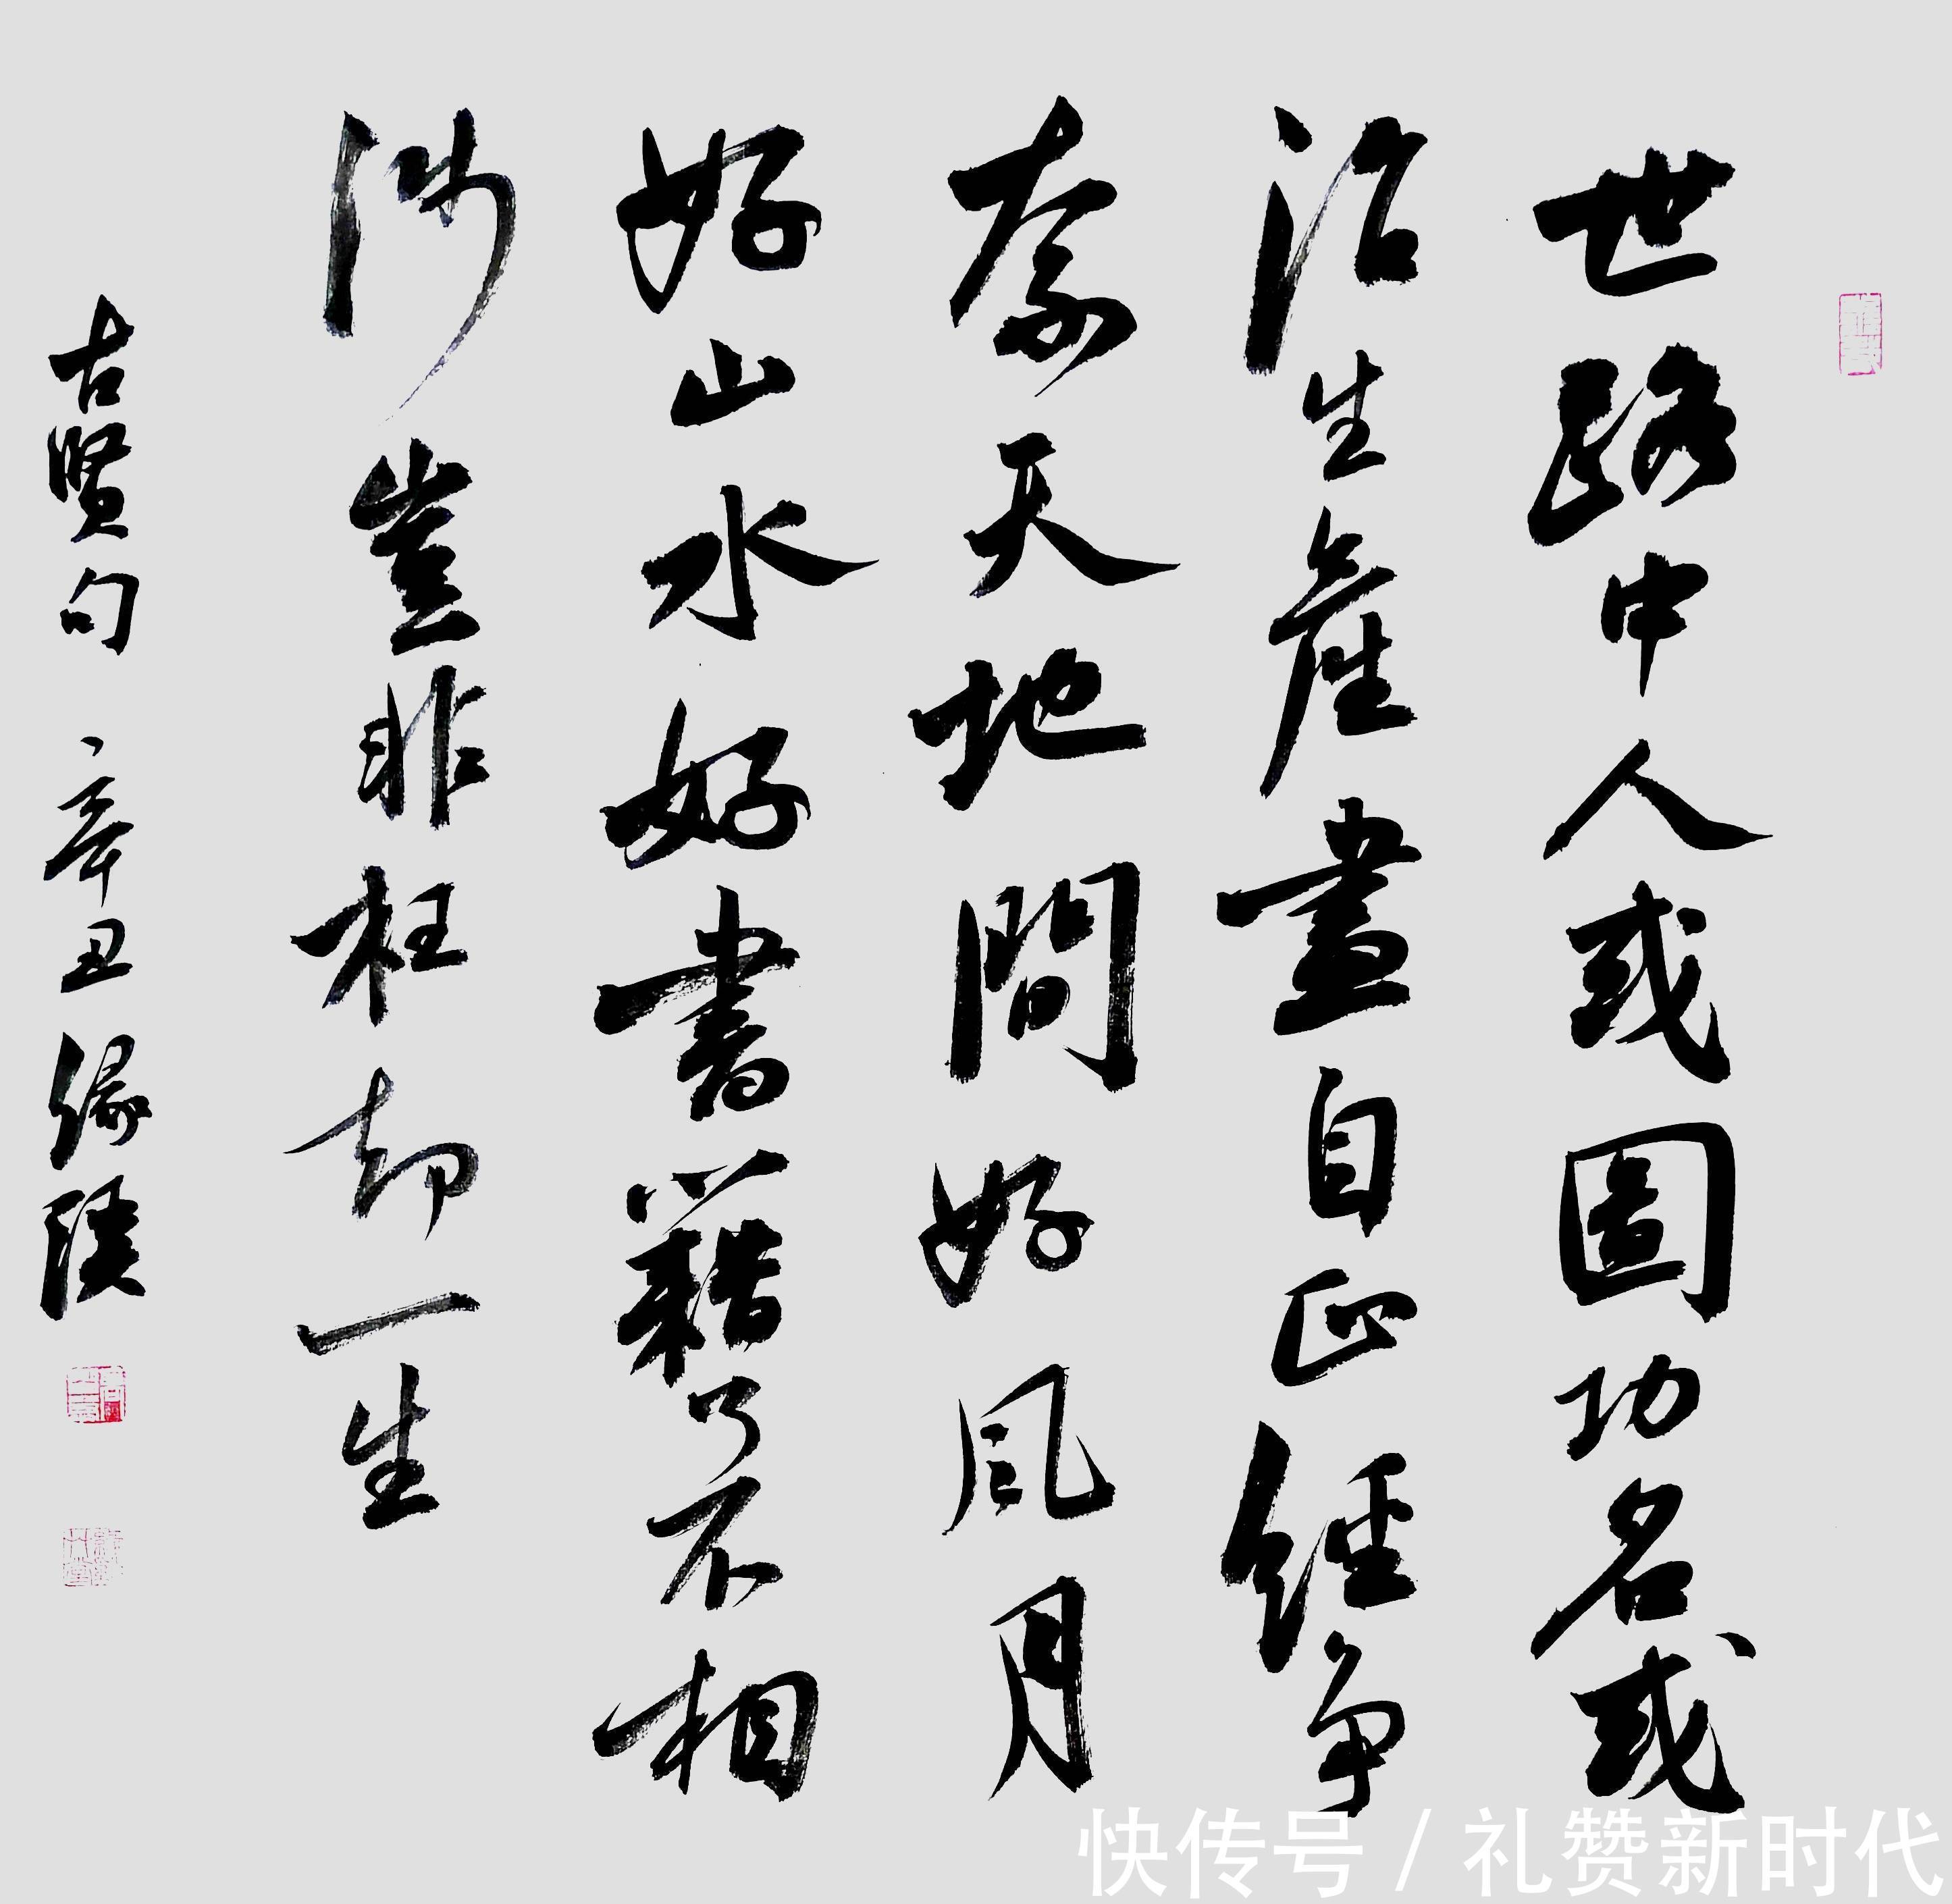 世路中人或圖功名或
治生產盡自正經争
奈天地間好風月
好山水好書籍了不相
涉豈非枉却一生
古賢句 辛丑
快传号 / 礼赞新时代